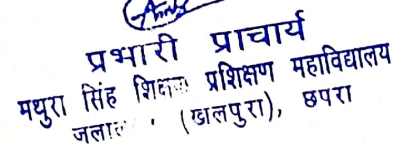 प्रभारी प्राचार्य
मथुरा सिंह प्रशिक्षण महाविद्यालय
(खालपुरा), छपरा